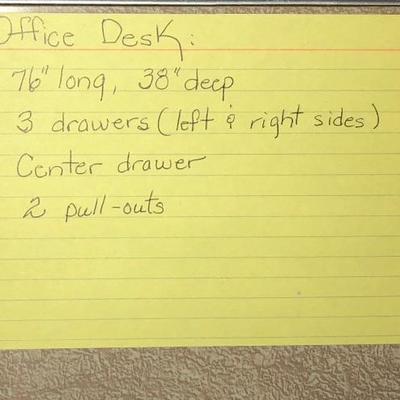 Office Desk:
76" long, 38" deep
3 drawers (left & right sides)
Center drawer
2 pull-outs